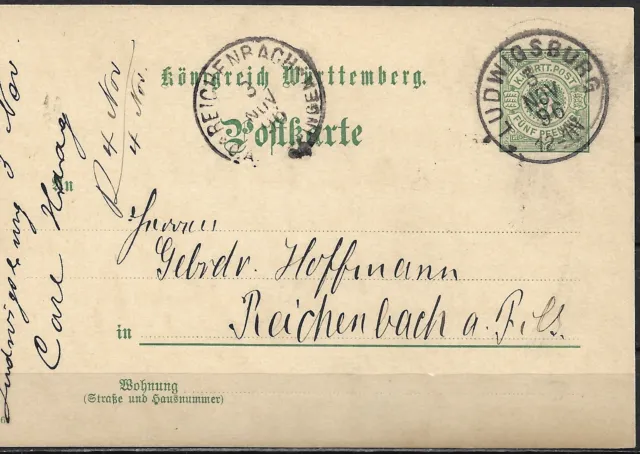 Königreich Württemberg.
Postkarte
K. WÜRTT. POST
FÜNF PFENNIG
LUDWIGSBURG
3
NOV
96
REICHENBACH
3
NOV
An
Herren
Gebrdr. Hoffmann
in Reichenbach a. Fils.
Wohnung
(Straße und Hausnummer)
4 Nov
4 Nov.
Ludwigsburg 3 Nov.
Carl Haag